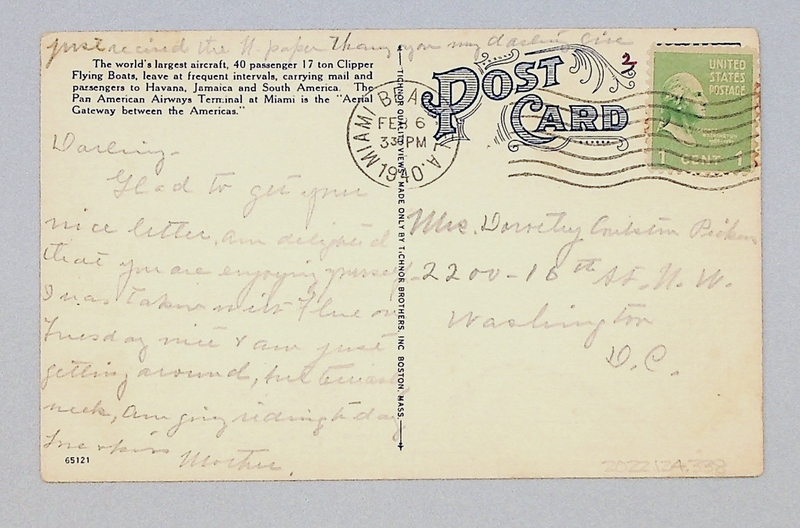 just recived the N. paper Thank you my darling
The world's largest aircraft, 40 passenger 17 ton Clipper
Flying Boats, leave at frequent intervals, carrying mail and
passengers to Havana, Jamaica and South America. The
Pan American Airways Terminal at Miami is the "Aerial
Gateway between the Americas."
Darling-
Glad to get your
nice letter, am delighted
that you are enjoying yourself
I was taken with Flue on
Tuesday nite & am just
getting around, but
neck, am going riding to day
Love
Mother.
65121
TICHNOR QUALITY VIEWS MADE ONLY BY TICHNOR BROTHERS, INC. BOSTON, MASS.
POST
CARD
MIAMI BEACH
FEB 6
330 PM
1940
2
UNITED
STATES
POSTAGE
1 CENT 1
Mrs. Dorothy
2200-16th St. N. W.
Washington
D.C.